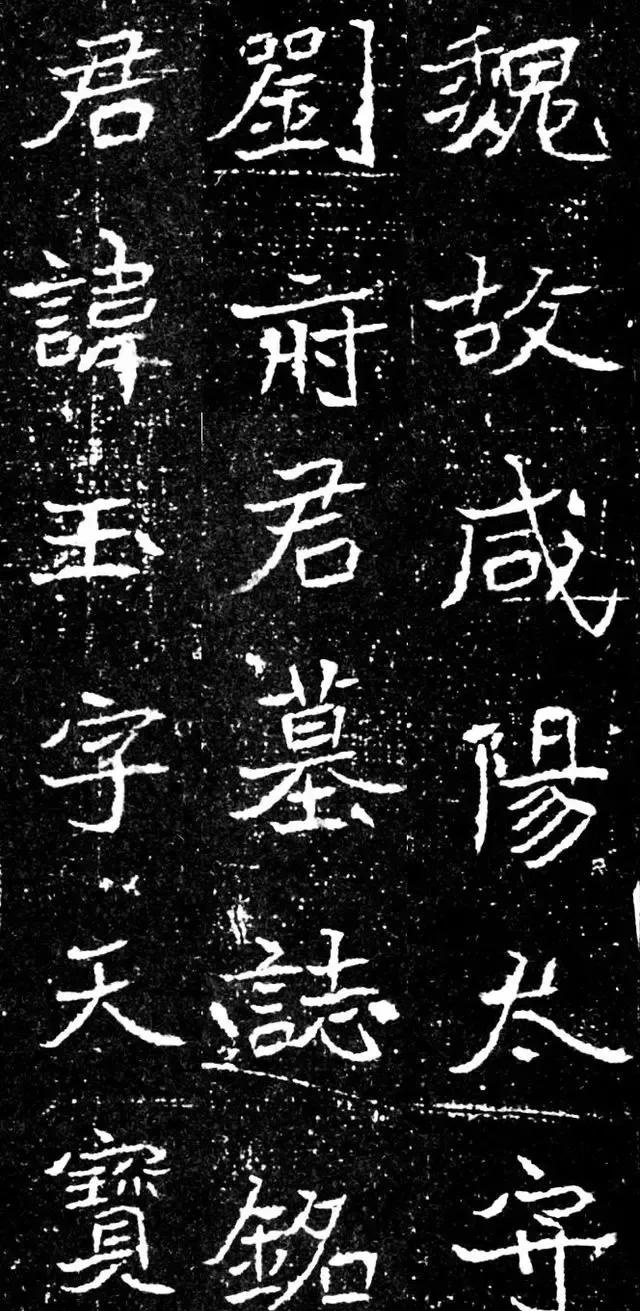 魏故咸陽太守
劉府君墓誌銘
君諱玉字天寶